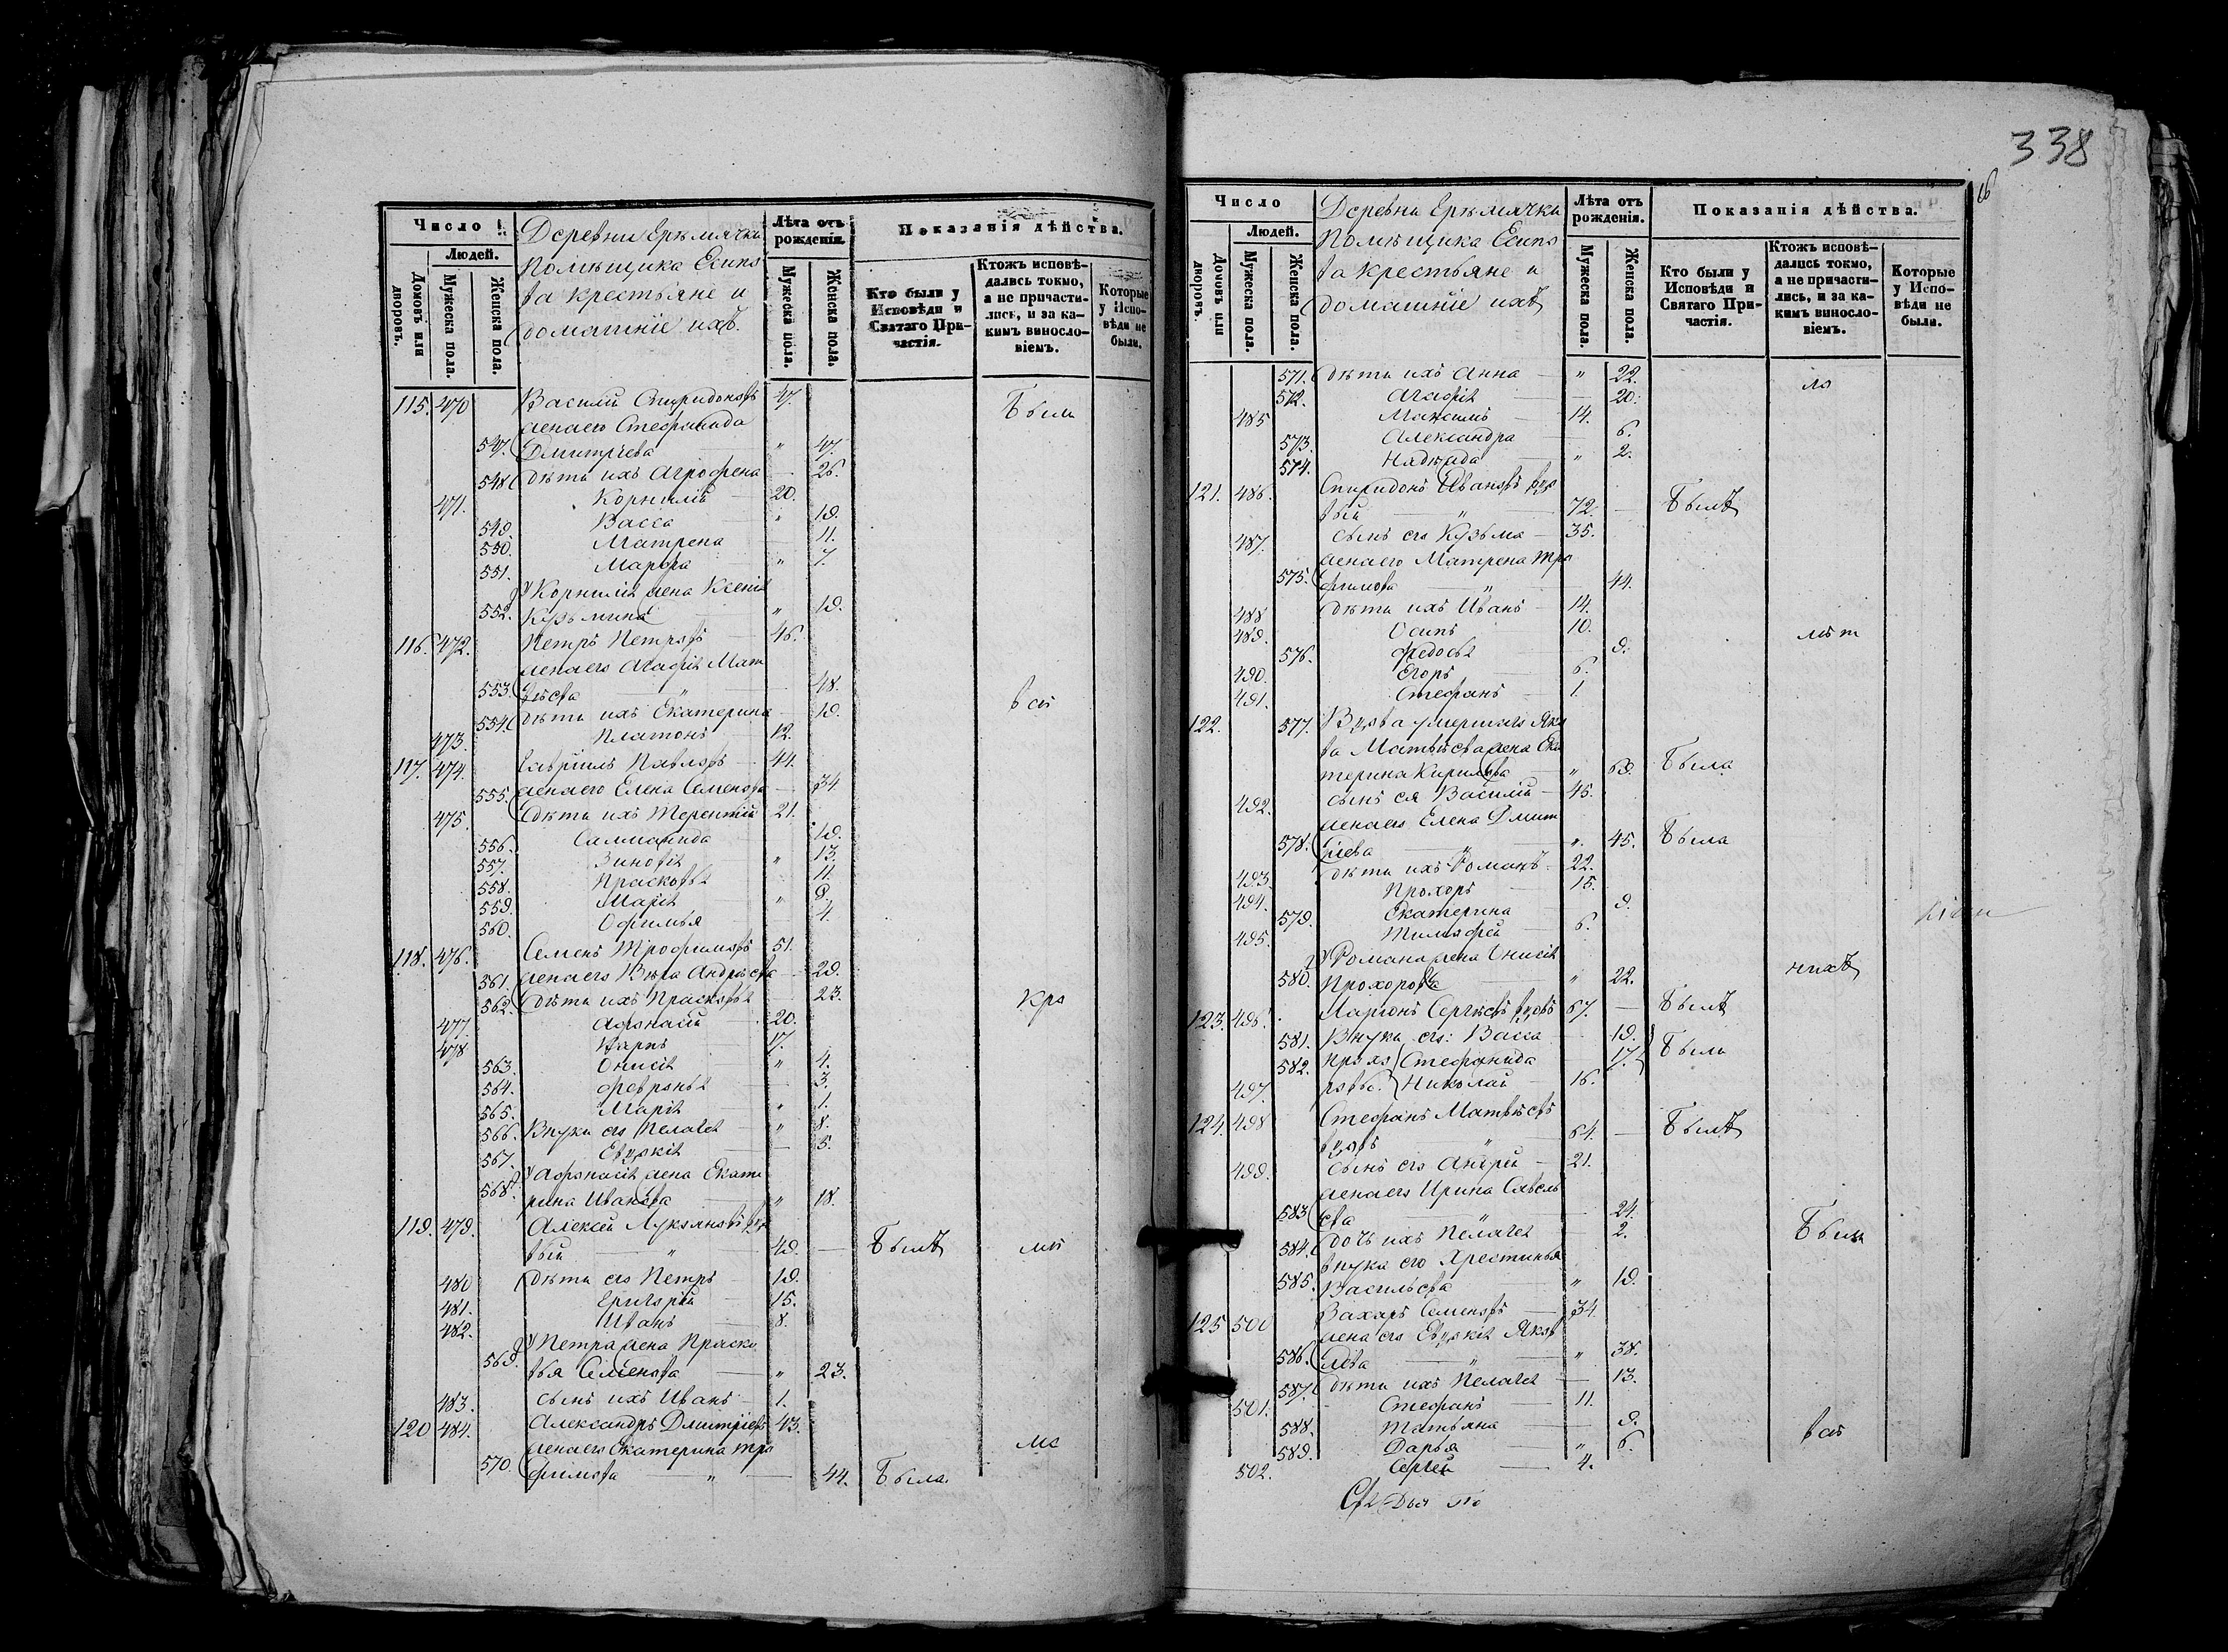 338
Число
Людей.
Домовъ или дворовъ.
Мужеска пола.
Женска пола.
Деревни Ерѣмячки
Помѣщика Есипо
ва крестьяне и
домашніе ихъ.
Лѣта отъ рожденія.
Мужеска пола.
Женска пола.
Показанія дѣйства.
Кто были у Исповѣди и Святаго Причастія.
Ктожъ исповѣдались токмо, а не причастились, и за какимъ винословіемъ.
Которые у Исповѣди не были.
115. 470 Василій Спиридоновъ 47. Были
жена его Стефанида
547. Дмитріева " 47.
548 дѣти ихъ Агрофена 26.
471. Корнилій 20.
549. Васса " 19.
550. Матрена 11.
551. Марфа " 7.
У Корнилія жена Ксенія
552. Козьмина " 19.
116. 472. Петръ Петровъ 46.
жена его Агафія Мат
553. ѣева " 48.
554. дѣти ихъ Екатерина 19.
473. Платонъ 12.
117. 474. Гавріилъ Павловъ 44.
555. жена его Елена Семенова 34
475. дѣти ихъ Терентій 21.
556. 19.
557. Зиновія " 13.
558. Прасковья 11.
559. Марія " 8.
560. Офимья 4.
118. 476. Семенъ Трофимовъ 51.
561. жена его Вѣра Андрѣева 29.
562. дѣти ихъ Прасковья 23. кро
477. Афонасій 20.
478 Карпъ 17.
563. Онисія " 4.
564. Февронья 3.
565. Марія " 1.
566. Внуки его Пелагея " 8.
567. Евдокія 5.
У Афонасія жена Екате
568. рина Иванова " 18.
119. 479. Алексѣй Лукояновъ вдо
вый " 49. Былъ
480 дѣти его Петръ 19.
481. Григорій 15.
482. Иванъ 8.
У Петра жена Праско
569. вья Семенова " 23.
483. сынъ ихъ Иванъ 1.
120 484. Александръ Дмитріевъ 43.
жена его Екатерина Тро
570. фимова " 44. Была.
Число
Людей.
Домовъ или дворовъ.
Мужеска пола.
Женска пола.
Деревни Ерѣмячки
Помѣщика Есипо
ва крестьяне и
домашніе ихъ
Лѣта отъ рожденія.
Мужеска пола.
Женска пола.
Показанія дѣйства.
Кто были у Исповѣди и Святаго Причастія.
Ктожъ исповѣдались токмо, а не причастились, и за какимъ винословіемъ.
Которые у Исповѣди не были.
571. дѣти ихъ Анна " 22.
572. Агафія 20.
485 Максимъ 14.
573. Александра 6.
574. Надежда " 2.
121. 486. Спиридонъ Ивановъ вдо
вый " 72. Былъ
487. сынъ его Кузьма 35.
жена его Матрена Тро
575. фимова " 44.
488 дѣти ихъ Иванъ 14.
489. Осипъ 10.
576. Федосья 9.
490. Егоръ 6.
491. Стефанъ 1.
122. 577. Вдова умершаго Яко
ва Матвѣева жена Ека
терина Кирилова " 69. Была
492. сынъ ея Василій 45.
жена его Елена Дмит
578. ріева " 45. Была
493. дѣти ихъ Романъ 22.
494. Прохоръ 15.
579. Екатерина 9.
495. Тимофей 6.
У Романа жена Онисія
580. Прохорова " 22.
123. 496. Ларіонъ Сергѣевъ вдовъ 67. Былъ
581. Внуки его: Васса 19. Были
582. Прохо Стефанида 17.
497. ровы. Николай 16.
124. 498 Стефанъ Матвѣевъ
вдовъ " 64. Былъ
499. сынъ его Андрей 21.
жена его Ирина Савель
583 ева " 24.
584. дочь ихъ Пелагея 2. Были
внука его Хрестинья
585. Васильева " 19.
125 500 Захаръ Семеновъ 34
жена его Евдокія Яков
586. лева " 38.
587. дѣти ихъ Пелагея 13.
501. Стефанъ 11.
588. Татьяна 9.
589. Дарья " 6.
502. Сергей 4.